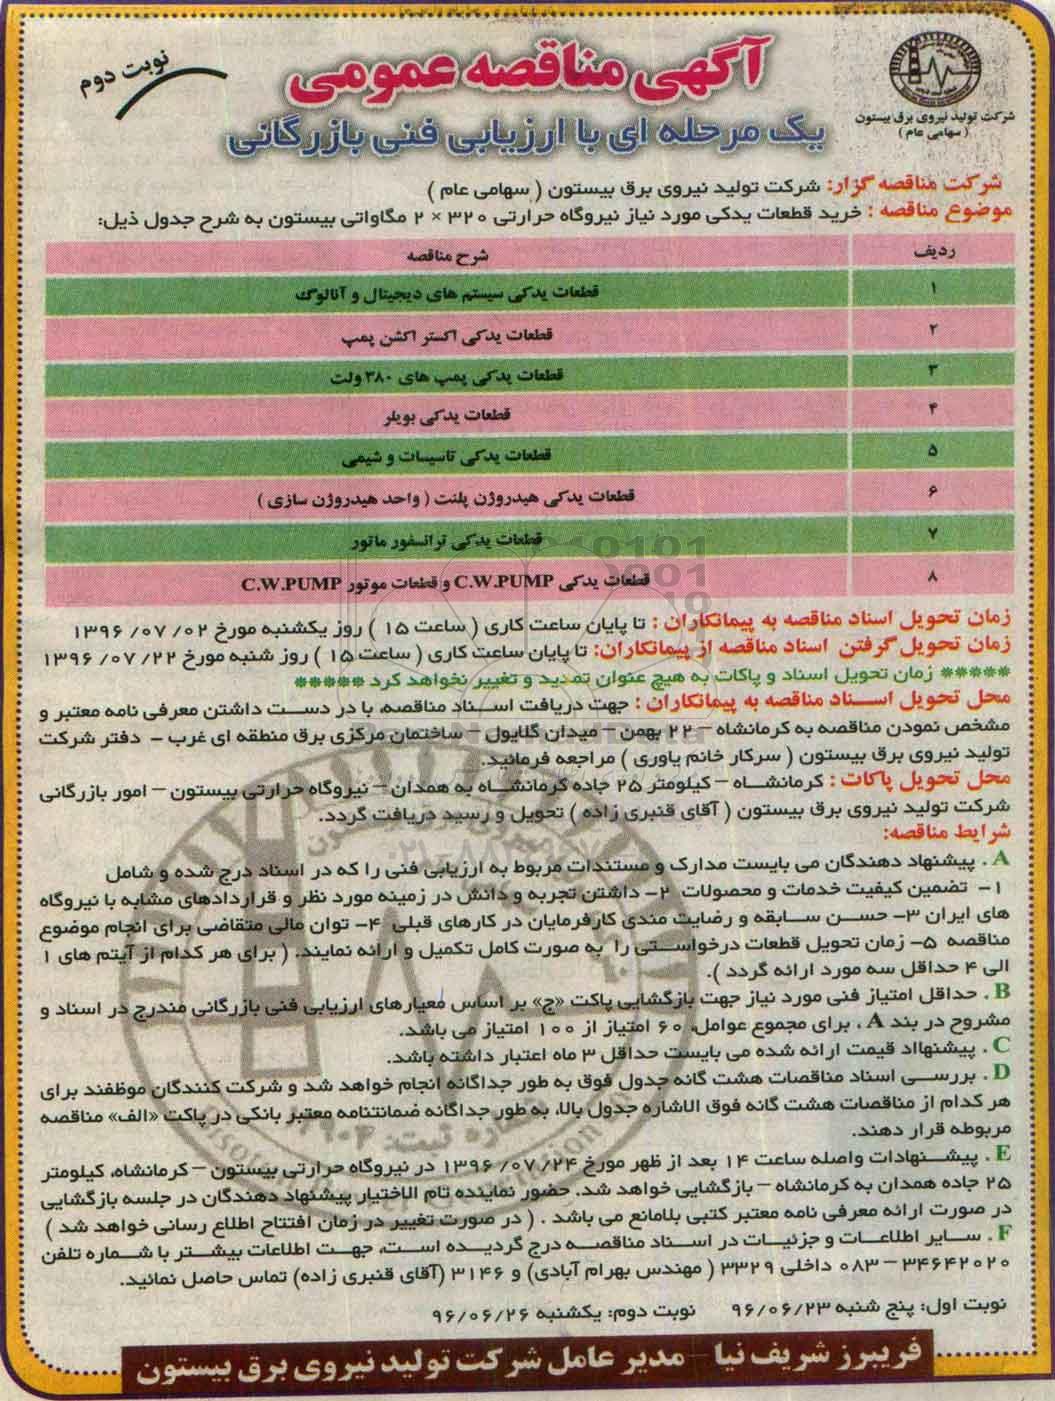 نوبت دوم
آگهی مناقصه عمومی
یک مرحله ای با ارزیابی فنی بازرگانی
شرکت تولید نیروی برق بیستون
( سهامی عام )
شرکت مناقصه گزار: شرکت تولید نیروی برق بیستون ( سهامی عام )
موضوع مناقصه : خرید قطعات یدکی مورد نیاز نیروگاه حرارتی ۳۲۰ × ۲ مگاواتی بیستون به شرح جدول ذیل:
ردیف شرح مناقصه
۱ قطعات یدکی سیستم های دیجیتال و آنالوگ
۲ قطعات یدکی اکستر اکشن پمپ
۳ قطعات یدکی پمپ های ۳۸۰ ولت
۴ قطعات یدکی بویلر
۵ قطعات یدکی تاسیسات و شیمی
۶ قطعات یدکی هیدروژن پلنت ( واحد هیدروژن سازی )
۷ قطعات یدکی ترانسفور ماتور
۸ قطعات یدکی C.W.PUMP و قطعات موتور C.W.PUMP
زمان تحویل اسناد مناقصه به پیمانکاران : تا پایان ساعت کاری ( ساعت ۱۵ ) روز یکشنبه مورخ ۱۳۹۶/۰۷/۰۲
زمان تحویل گرفتن اسناد مناقصه از پیمانکاران: تا پایان ساعت کاری ( ساعت ۱۵ ) روز شنبه مورخ ۱۳۹۶/۰۷/۲۲
***** زمان تحویل اسناد و پاکات به هیچ عنوان تمدید و تغییر نخواهد کرد *****
محل تحویل اسناد مناقصه به پیمانکاران : جهت دریافت اسناد مناقصه، با در دست داشتن معرفی نامه معتبر و
مشخص نمودن مناقصه به کرمانشاه – ۲۲ بهمن – میدان گلایول – ساختمان مرکزی برق منطقه ای غرب – دفتر شرکت
تولید نیروی برق بیستون ( سرکار خانم یاوری ) مراجعه فرمائید.
محل تحویل پاکات : کرمانشاه – کیلومتر ۲۵ جاده کرمانشاه به همدان – نیروگاه حرارتی بیستون – امور بازرگانی
شرکت تولید نیروی برق بیستون ( آقای قنبری زاده ) تحویل و رسید دریافت گردد.
شرایط مناقصه:
A . پیشنهاد دهندگان می بایست مدارک و مستندات مربوط به ارزیابی فنی را که در اسناد درج شده و شامل
۱- تضمین کیفیت خدمات و محصولات ۲- داشتن تجربه و دانش در زمینه مورد نظر و قراردادهای مشابه با نیروگاه
های ایران ۳- حسن سابقه و رضایت مندی کارفرمایان در کارهای قبلی ۴- توان مالی متقاضی برای انجام موضوع
مناقصه ۵- زمان تحویل قطعات درخواستی را به صورت کامل تکمیل و ارائه نمایند. ( برای هر کدام از آیتم های ۱
الی ۴ حداقل سه مورد ارائه گردد ).
B . حداقل امتیاز فنی مورد نیاز جهت بازگشایی پاکت «ج» بر اساس معیارهای ارزیابی فنی بازرگانی مندرج در اسناد و
مشروح در بند A ، برای مجموع عوامل، ۶۰ امتیاز از ۱۰۰ امتیاز می باشد.
C . پیشنهااد قیمت ارائه شده می بایست حداقل ۳ ماه اعتبار داشته باشد.
D . بررسی اسناد مناقصات هشت گانه جدول فوق به طور جداگانه انجام خواهد شد و شرکت کنندگان موظفند برای
هر کدام از مناقصات هشت گانه فوق الاشاره جدول بالا، به طور جداگانه ضمانتنامه معتبر بانکی در پاکت «الف» مناقصه
مربوطه قرار دهند.
E . پیشنهادات واصله ساعت ۱۴ بعد از ظهر مورخ ۱۳۹۶/۰۷/۲۴ در نیروگاه حرارتی بیستون – کرمانشاه، کیلومتر
۲۵ جاده همدان به کرمانشاه – بازگشایی خواهد شد. حضور نماینده تام الاختیار پیشنهاد دهندگان در جلسه بازگشایی
در صورت ارائه معرفی نامه معتبر کتبی بلامانع می باشد . ( در صورت تغییر در زمان افتتاح اطلاع رسانی خواهد شد )
F . سایر اطلاعات و جزئیات در اسناد مناقصه درج گردیده است، جهت اطلاعات بیشتر با شماره تلفن
۳۴۶۴۲۰۲۰ – ۰۸۳ داخلی ۳۳۲۹ ( مهندس بهرام آبادی) و ۳۱۴۶ (آقای قنبری زاده) تماس حاصل نمائید.
نوبت اول: پنج شنبه ۹۶/۰۶/۲۳ نوبت دوم: یکشنبه ۹۶/۰۶/۲۶
فریبرز شریف نیا - مدیر عامل شرکت تولید نیروی برق بیستون